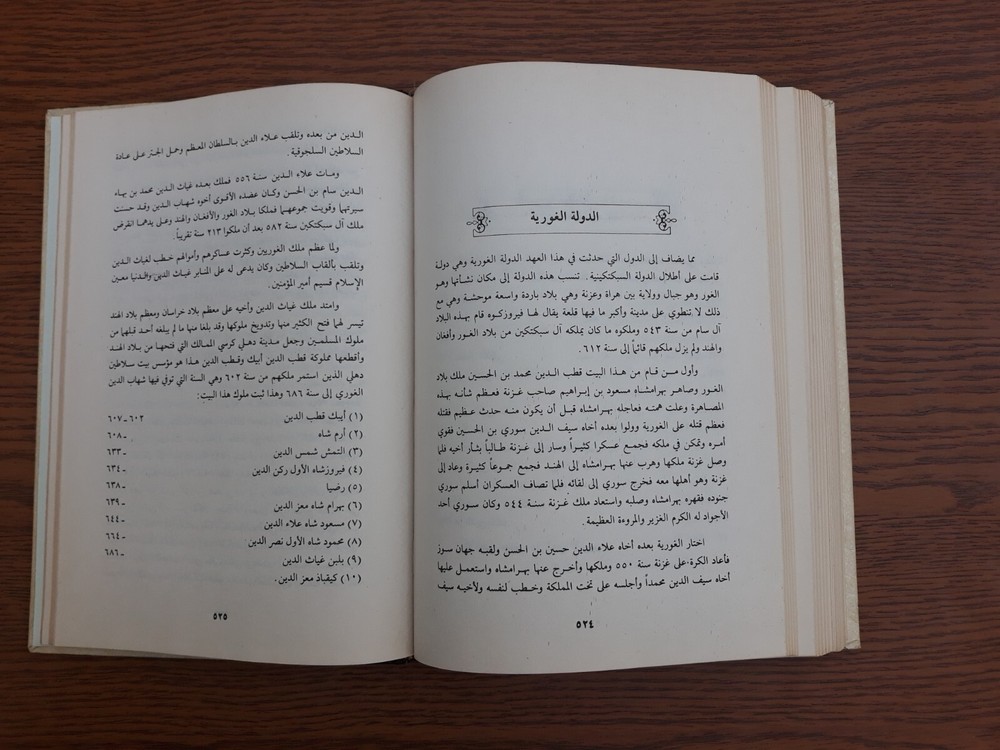 الدولة الغورية
مما يضاف إلى الدول التي حدثت في هذا العهد الدولة الغورية وهي دولة
قامت على أطلال الدولة السبكتكينية . تنسب هذه الدولة إلى مكان نشأتها وهو
الغور وهو جبال وولاية بين هراة وغزنة وهي بلاد باردة واسعة موحشة وهي مع
ذلك لا تنطوي على مدينة وأكبر ما فيها قلعة يقال لها فيروزكوه قام بهذه البلاد
آل سام من سنة ٥٤٣ وملكوه ما كان يملكه آل سبكتكين من بلاد الغور وأفغان
والهند ولم يزل ملكهم قائماً إلى سنة ٦١٢ .
وأول من قام من هذا البيت قطب الدين محمد بن الحسين ملك بلاد
الغور وصاهر بهرامشاه مسعود بن إبراهيم صاحب غزنة فعظم شأنه بهذه
المصاهرة وعلت همته فعاجله بهرامشاه قبل أن يكون منه حدث عظيم فقتله
فعظم قتله على الغورية وولوا بعده أخاه سيف الدين سوري بن الحسين فقوي
أمره وتمكن في ملكه فجمع عسكرا كثيراً وسار إلى غزنة طالباً بثأر أخيه فلما
وصل غزنة ملكها وهرب عنها بهرامشاه إلى الهند فجمع جموعاً كثيرة وعاد إلى
غزنة وهو أهلها معه فخرج سوري إلى لقائه فلما تصاف العسكران أسلم سوري
جنوده فقهره بهرامشاه وصلبه واستعاد ملك غزنة سنة ٥٤٤ وكان سوري أحد
الأجواد له الكرم الغزير والمروءة العظيمة .
اختار الغورية بعده أخاه علاء الدين حسين بن الحسن ولقبه جهان سوز
فأعاد الكرة على غزنة سنة ٥٥٠ وملكها وأخرج عنها بهرامشاه واستعمل عليها
أخاه سيف الدين محمداً وأجلسه على تخت المملكة وخطب لنفسه ولأخيه سيف
٥٢٤
الدين من بعده وتلقب علاء الدين بالسلطان المعظم وحمل الجتر على عادة
السلاطين السلجوقية .
ومات علاء الدين سنة ٥٥٦ فملك بعده غياث الدين محمد بن بهاء
الدين سام بن الحسن وكان عضده الأقوى أخوه شهاب الدين وقد حسنت
سيرتهما وقويت جموعهما فملكا بلاد الغور والأفغان والهند وعلى يدهما انقرض
ملك آل سبكتكين سنة ٥٨٢ بعد أن ملكوا ٢١٣ سنة تقريباً .
ولما عظم ملك الغوريين وكثرت عساكرهم وأموالهم خطب لغياث الدين
وتلقب بألقاب السلاطين وكان يدعى له على المنابر غياث الدين والدنيا معين
الإسلام قسيم أمير المؤمنين .
وامتد ملك غياث الدين وأخيه على معظم بلاد خراسان ومعظم بلاد الهند
تيسر لهما فتح الكثير منها وتدويخ ملوكها وقد بلغا منها ما لم يبلغه أحد قبلهما من
ملوك المسلمين وجعل مدينة دهلي كرسي الممالك التي فتحها من بلاد الهند
وأقطعها مملوكة قطب الدين أيبك وقطب الدين هذا هو مؤسس بيت سلاطين
دهلي الذين استمر ملكهم من سنة ٦٠٢ وهي السنة التي توفي فيها شهاب الدين
الغوري إلى سنة ٦٨٦ وهذا ثبت ملوك هذا البيت:
(١) أيبك قطب الدين ٦٠٢ــ٦٠٧
(٢) أرم شاه ــ ٦٠٨
(٣) التمش شمس الدين ــ ٦٣٣
(٤) فيروزشاه الأول ركن الدين ــ ٦٣٤
(٥) رضيا ــ ٦٣٨
(٦) بهرام شاه معز الدين ــ ٦٣٩
(٧) مسعود شاه علاء الدين ــ ٦٤٤
(٨) محمود شاه الأول نصر الدين ــ ٦٦٤
(٩) بلبن غياث الدين ــ ٦٨٦
(١٠) كيقباذ معز الدين .
٥٢٥